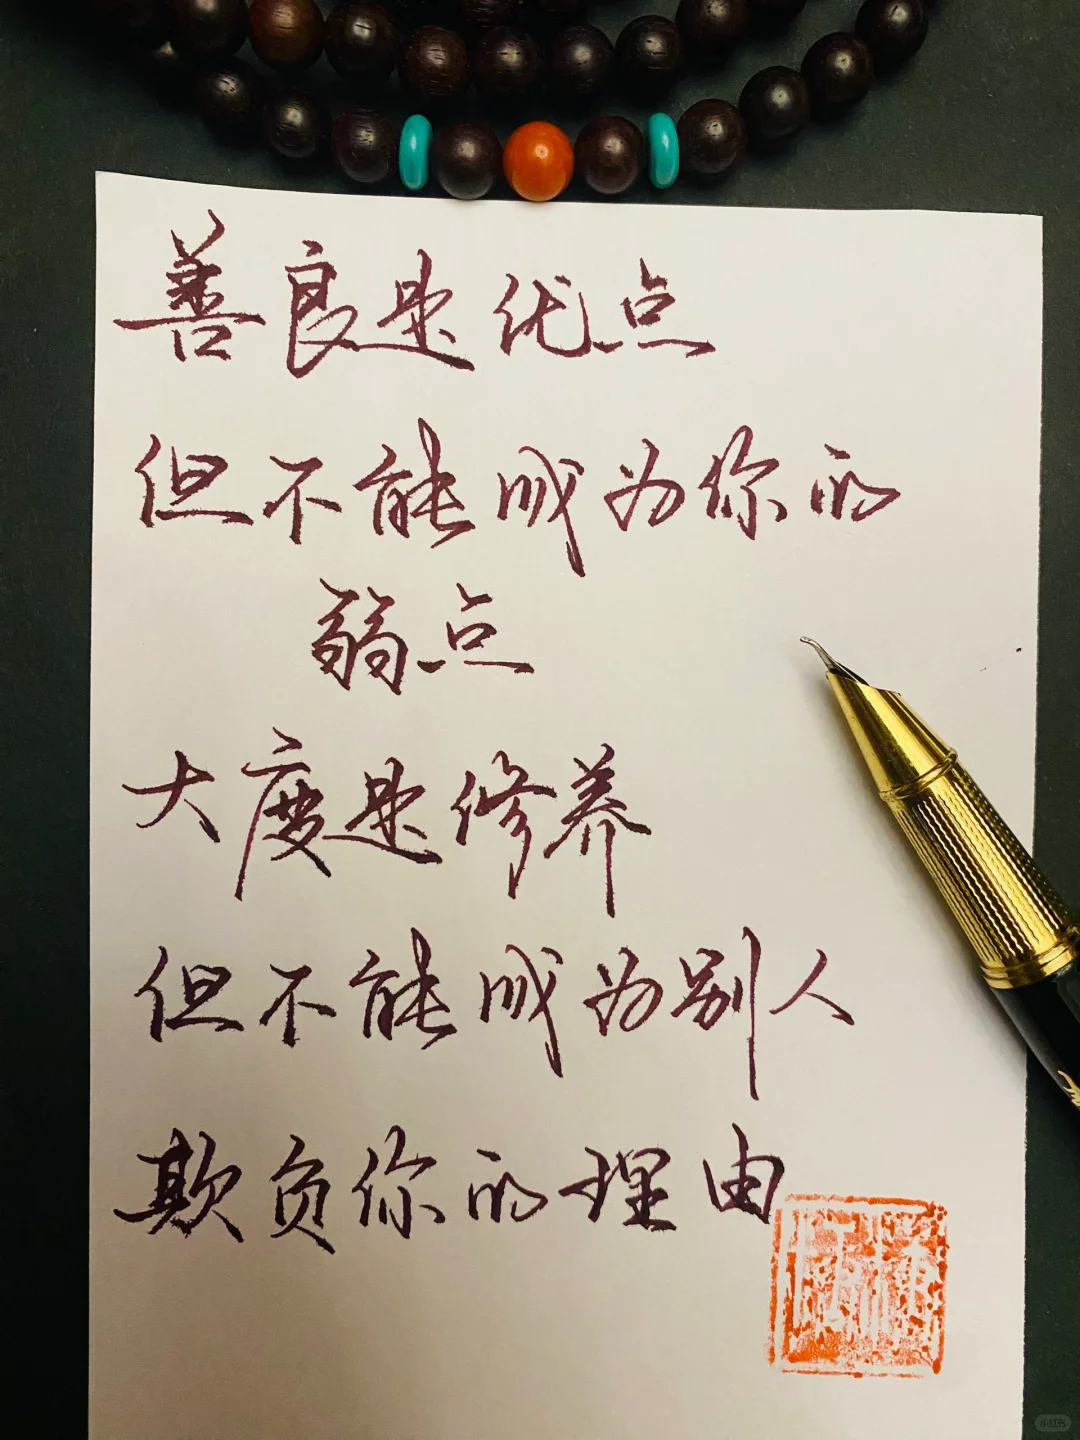 善良是优点
但不能成为你的
弱点
大度是修养
但不能成为别人
欺负你的理由
小红书